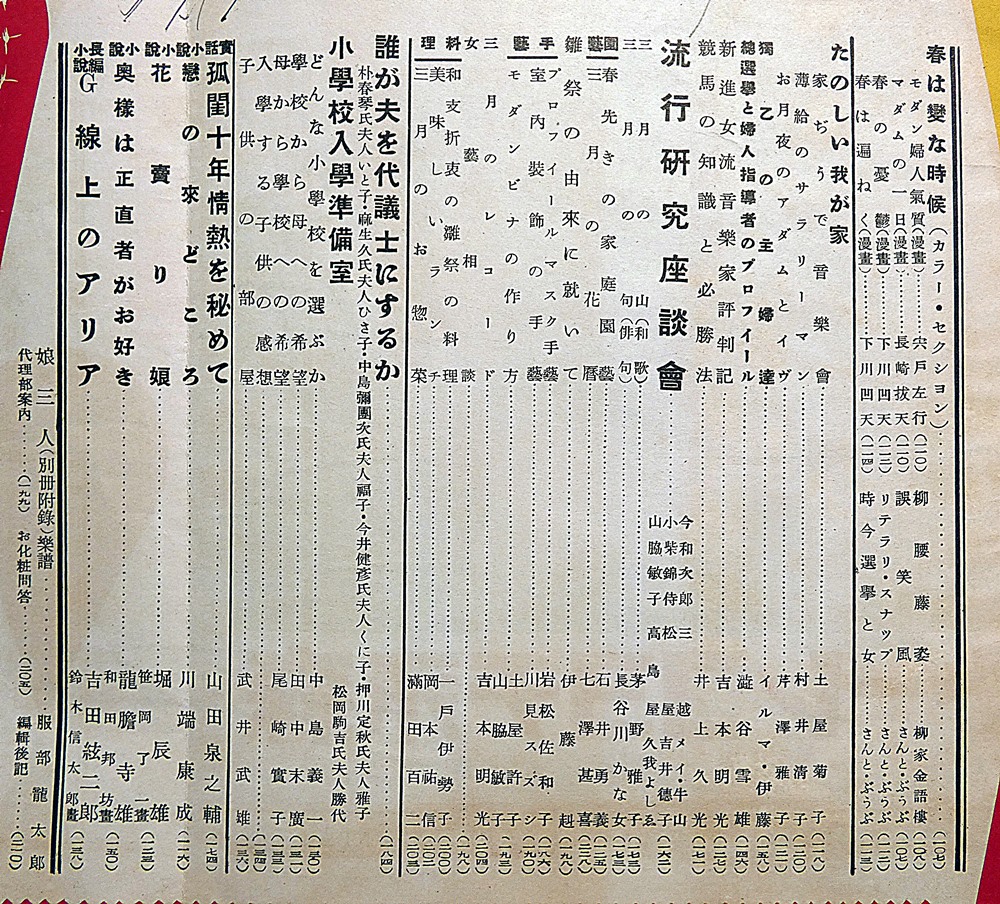 春は變な時候(カラー・セクション)…(一〇七)
モダン婦人氣質(漫畫)…宍戸左行(一一〇)
マダムの一日(漫畫)…長崎抜天(一一〇)
春の憂鬱(漫畫)…下川凹天(一一二)
春は遍ねく(漫畫)…下川凹天(一一四)
柳腰藤姿…柳家金語樓(一〇八)
誤笑風…さんと・ぶうぶ(一〇七)
リテラリ・スナップ…さんと・ぶうぶ(一一二)
時今選擧と女…さんと・ぶうぶ(一一三)
たのしい我が家
家ぢうで音樂會…土屋菊子(一一八)
薄給のサラリーマン…村井清子(一二〇)
お月夜のアダムとイヴ…芹澤雅子(一二二)
獨乙の主婦達…イルマ・伊藤(一五八)
總選擧と婦人指導者のプロフイール…澁谷雪雄(一四六)
新進女流音樂家評判記…吉本明光(一五七)
競馬の知識と必勝法…井上久光(一七一)
流行硏究座談會
今和次郎
小柴錦侍
山脇敏子
松三
高島屋
越山
メイ・牛山
吉井德子
久我よしゑ
(一六二)
三月の(和歌)…茅野雅子(一七三)
三月の句(俳句)…長谷川かな女(一七三)
園藝
春先きの家庭園藝…石井勇義(一二五)
三月の花曆…七澤甚喜(一二八)
雛祭の由來に就いて…伊藤
手藝
プロフイールマスク手藝…岩松佐和子(一八六)
室內裝飾の手藝…川見スズシ(一九〇)
モダンビナの作り方…土屋許子(一九二)
山脇敏子
三月のレコード…吉本明光(一〇四)
女藝相談…(一九八)
料理
和支折衷の雛祭の料理…一戶伊勢子(一〇〇)
美味しいランチ…岡本祐信(一〇一)
三月のお惣菜…滿田百二(一〇三)
誰が夫を代議士にするか…(一八四)
朴春琴氏夫人いと子・麻生久氏夫人ひさ子・中島彌團次氏夫人福子・今井健彥氏夫人くに子・押川定秋氏夫人雅子
松岡駒吉氏夫人勝代
小學校入學準備室
どんな小學校を選ぶか…中島義一(一三〇)
學校から母への希望…田中末廣(一三一)
母から學校への希望…尾崎實子(一三二)
入學する子供の感想…(一三四)
子供の部屋…武井武雄(一三六)
實話 孤閨十年情熱を秘めて…山田泉之輔(一七四)
小說 戀の來どころ…川端康成(一一六)
小說 花賣り娘…堀辰雄 笹岡了一畫(一二三)
小說 奥樣は正直者がお好き…龍膽寺雄 和田邦坊畫(一五〇)
長編小說 G線上のアリア…吉田絃二郎 鈴木信太郎畫(一三八)
娘三人(別冊附錄)樂譜…服部龍太郎
代理部案內…(一九九) お化粧問答…(二〇五) 編輯後記…(二一〇)